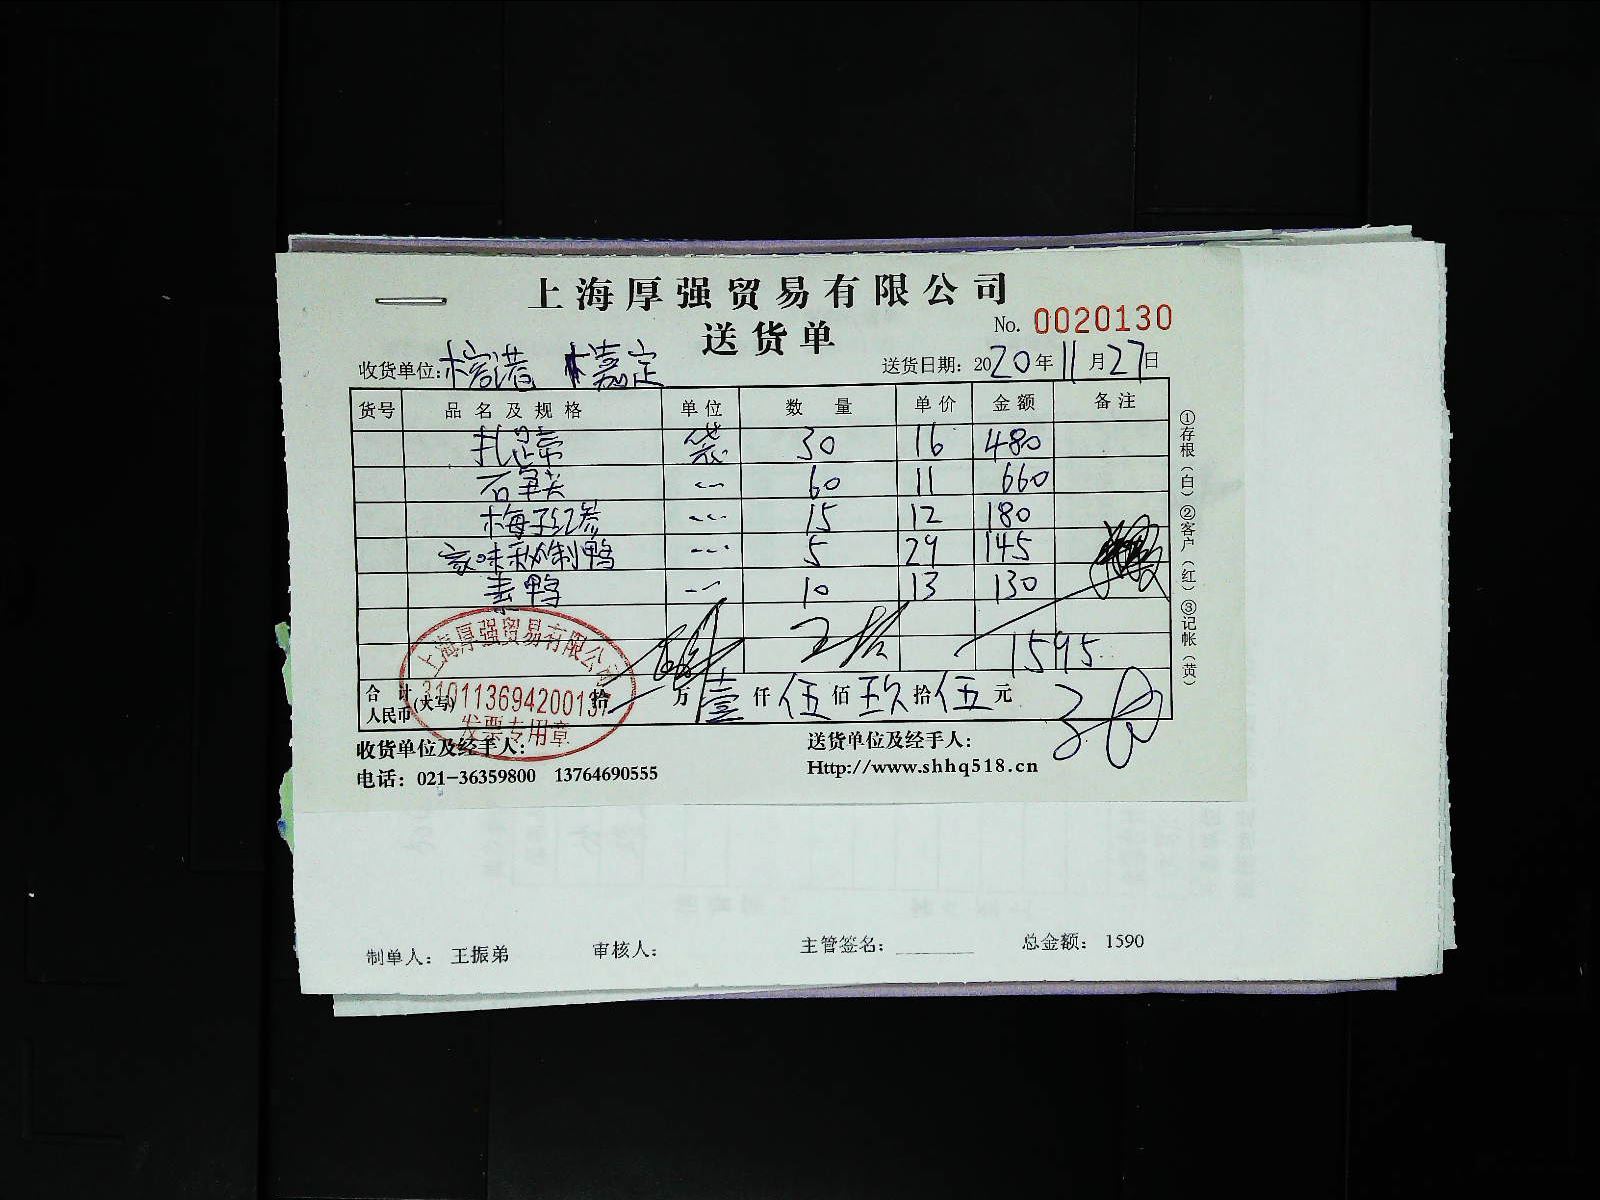 上海厚强贸易有限公司
送货单
No. 0020130
收货单位: 嘉定
送货日期: 2020年11月27日
货号 品名及规格 单位 数量 单价 金额 备注
扎蹄 袋 30 16 480
石笋尖 60 11 660
梅子红参 15 12 180
家味秘制鸭 5 29 145
素鸭 10 13 130
1595
合计人民币(大写) 拾 万 壹仟 伍佰 玖拾 伍元
上海厚强贸易有限公司
310113694200137
发票专用章
收货单位及经手人:
送货单位及经手人:
电话: 021-36359800 13764690555
Http://www.shhq518.cn
①存根(白)②客户(红)③记帐(黄)
制单人: 王振弟 审核人: 主管签名: 总金额: 1590